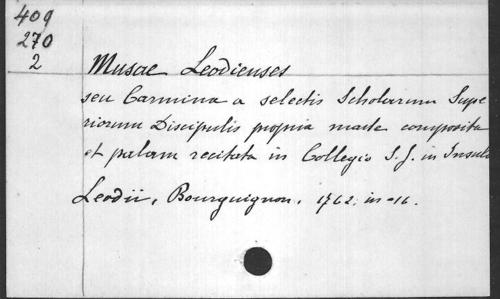 409
270
2
Musae Leodienses
seu Carmina a selectis Scholarum Supe
riorum Discipulis propria marte composita
et palam recitata in Collegio S. J. in Insula
Leodii, Bourguignon, 1762. in-16.